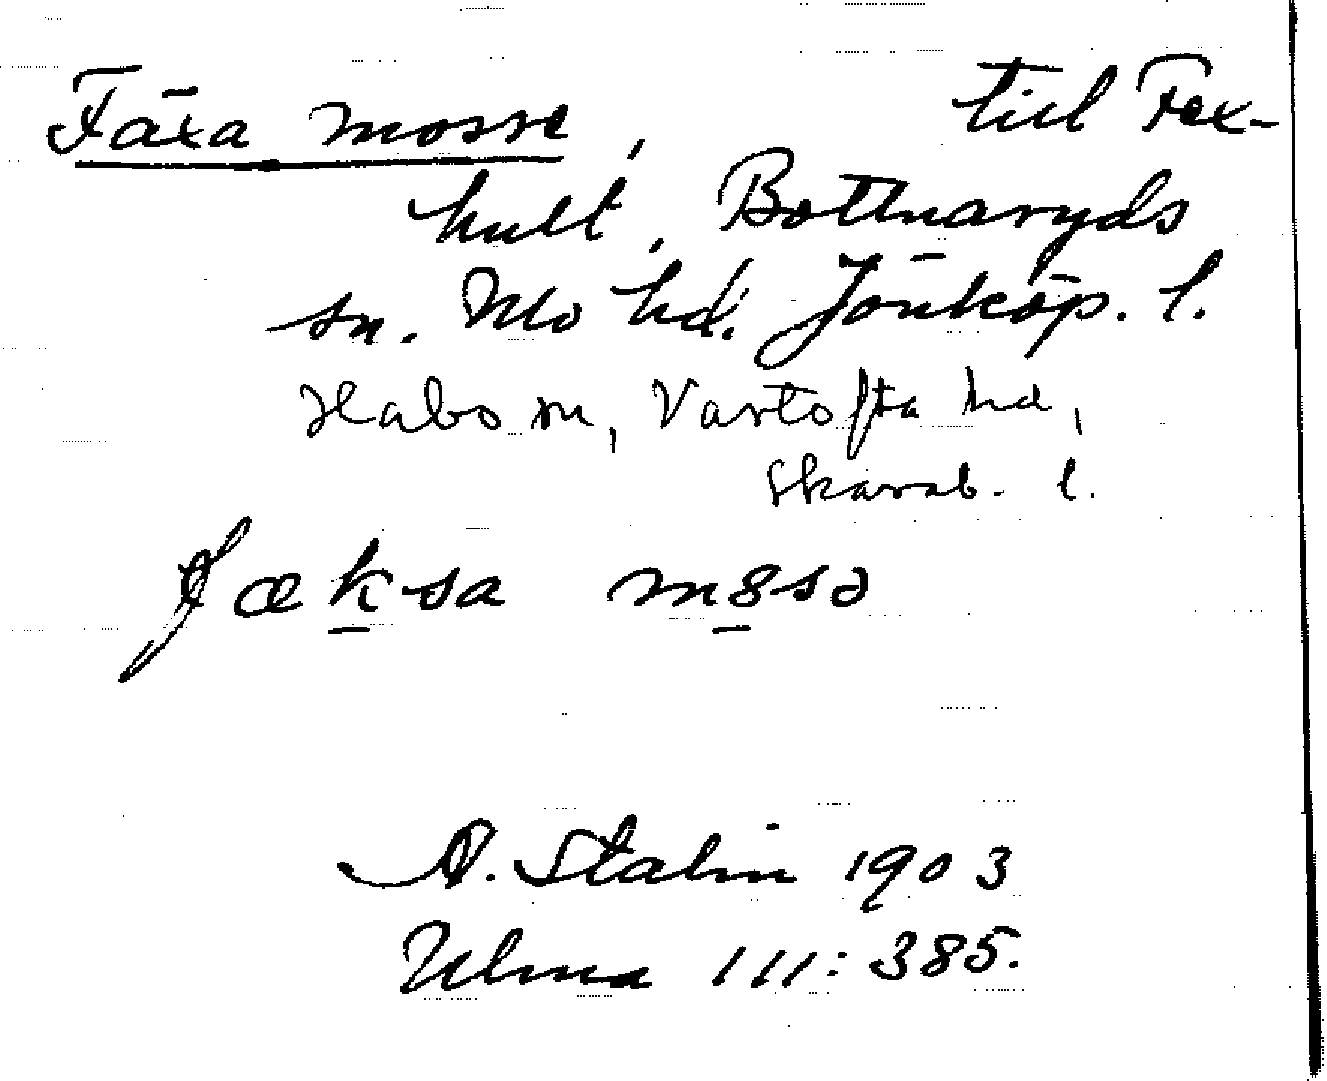 Fäxa mosse, till Fex-
hult, Bottnaryds
sn. Mo hd. Jönköp. l.
Habo sn, Vartofta hd,
Skarab. l.
fæksa mɷsə
A. Stalin 1903
Ulma 111:385.